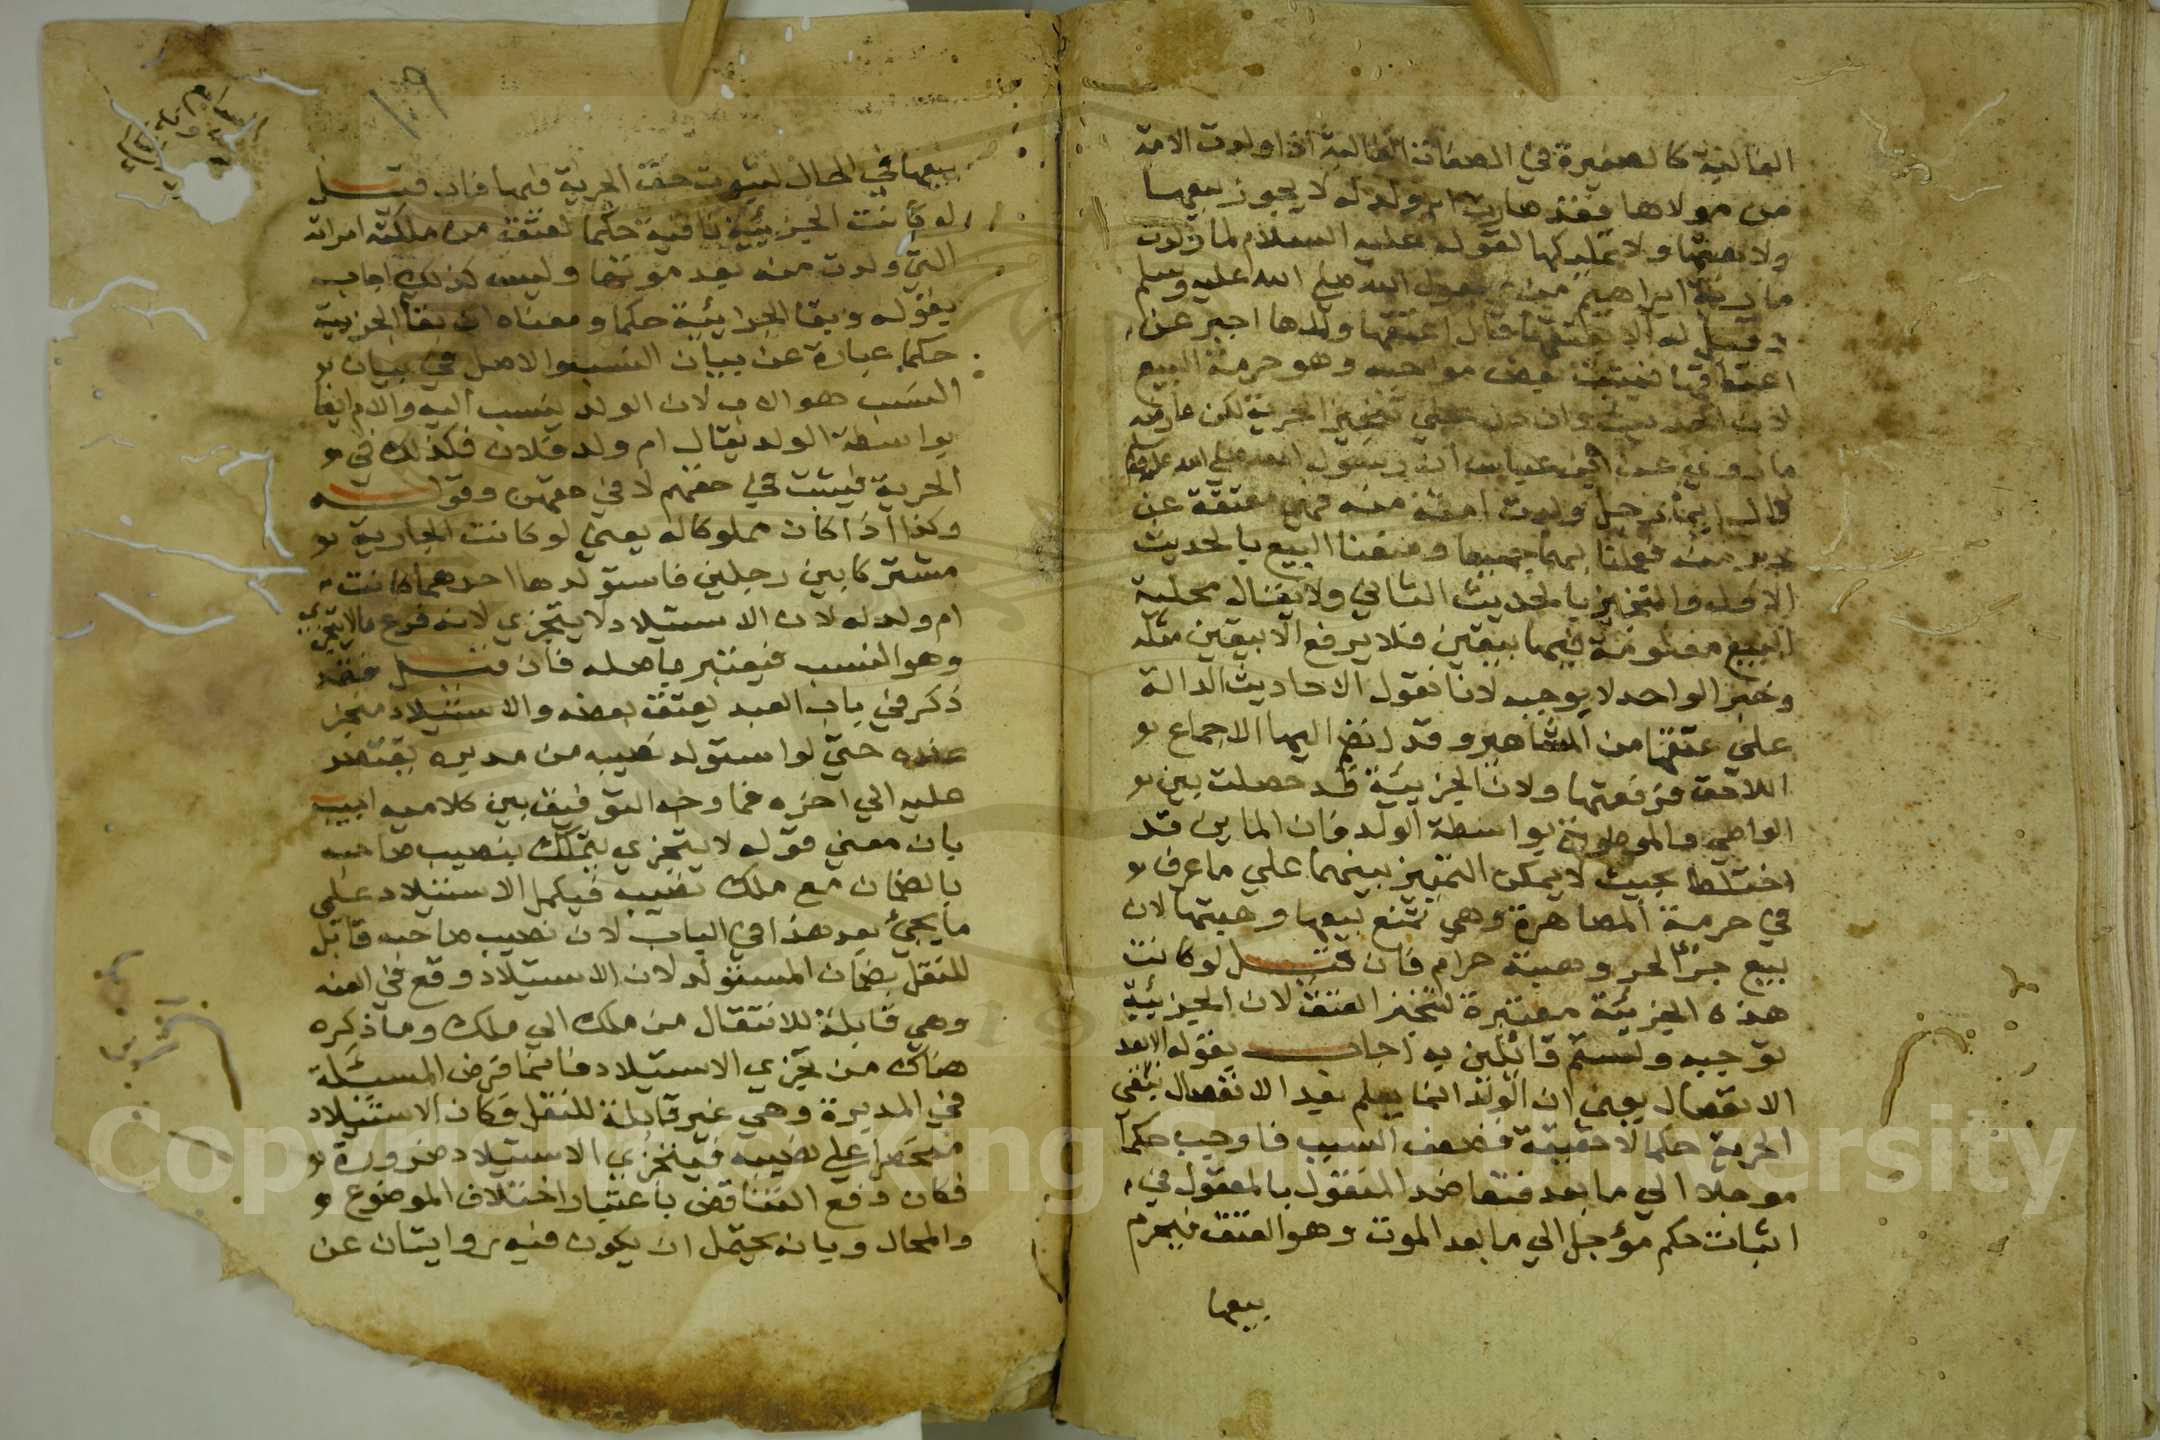 الغالية كالصغيرة في الصفات الغالبة اذا ولدت الامة
من مولاها فقد صارت ام ولد له لا يجوز بيعها
ولا هبتها ولا تمليكها لقوله عليه السلام لما ولدت
مارية ابراهيم من رسول الله صلى الله عليه وسلم
وقيل له الا تعتقها قال اعتقها ولدها اخبر عن
اعتاقها فيثبت بعض مواجبه وهو حرمة البيع
لان الحديث وان دل على تنجيز الحرية لكن عارضه
ما روي عن ابن عباس ان رسول الله صلى الله عليه وسلم
قال ايما رجل ولدت امته منه فهي معتقة عن
دبر منه فعملنا بهما جميعا ومنعنا البيع بالحديث
الاول والتنجيز بالحديث الثاني ولا يقال محلية
البيع معلومة فيها بيقين فلا يرفع الا بيقين مثله
وخبر الواحد لا يوجبه لانا نقول الاحاديث الدالة
على عتقها من المشاهير وقد انضم اليها الاجماع
اللاحق فرفعتها ولان الجزئية قد حصلت بين
الواطي والموطوءة بواسطة الولد فان المائين قد
اختلطا بحيث لا يمكن التمييز بينهما على ما عرف
في حرمة المصاهرة وهي تمنع بيعها وهبتها لان
بيع جزء الحر وهبته حرام فان قيل لو كانت
هذه الجزئية معتبرة لتنجز العتق لان الجزئية
توجبه ولستم قائلين به اجاب بقوله الا بعد
الانفصال يعني ان الولد انما يعلم بعد الانفصال يبقى
الحرية حكما لا حقيقة فضعف السبب فاوجب حكما
موجلا الى ما بعد فتعاضد المنقول بالمعقول في
اثبات حكم مؤجل الى ما بعد الموت وهو العتق فيحرم
بيعها
١٠٩
بيعها في الحال لثبوت حق الحرية فيها فان قيل
لو كانت الجزئية باقية حكما لعتق من ملكته امراته
التي ولدت منه بعد موتها وليس كذلك اجاب
بقوله وبقا الجزائية حكما ومعناه ان بقا الجزئية
حكما عبارة عن بيان النسب والاصل في بيان
النسب هو الاب لان الولد ينسب اليه والام ايضا
بواسطة الولد يقال ام ولد فلان فكذلك في
الحرية فيثبت في حقهم لا في حقهن وقوله
وكذا اذا كان مملوكا له يعني لو كانت الجارية
مشتركا بين رجلين فاستولدها احدهما كانت
ام ولد له لان الاستيلاد لا يتجزي لانه فرع ما لا يتجزي
وهو النسب فيعتبر باصله فان قيل فقد
ذكر في باب العبد يعتق بعضه والاستيلاد متجز
عنده حتى لو استولد نصيبه من مدبره يقتصر
عليه الى اخره فما وجه التوفيق بين كلاميه اجيب
بان معنى قوله لا يتجزي يتملك بنصيب صاحبه
بالضمان مع ملك نصيبه فيكمل الاستيلاد على
ما يجئ بعد هذا في الباب لان نصيب صاحبه قابل
للنقل بضمان المستولد لان الاستيلاد وقع في القنة
وهي قابلة للانتقال من ملك الى ملك وما ذكره
هناك من تجزي الاستيلاد فانما فرض المسئلة
في المدبرة وهي غير قابلة للنقل فكان الاستيلاد
منحصرا على نصيبه فيتجزي الاستيلاد ضرورة
فكان دفع التناقض باعتبار اختلاف الموضوع
والمحال وبانه يحتمل ان يكون فيه روايتان عن
Copyright © King Saud University